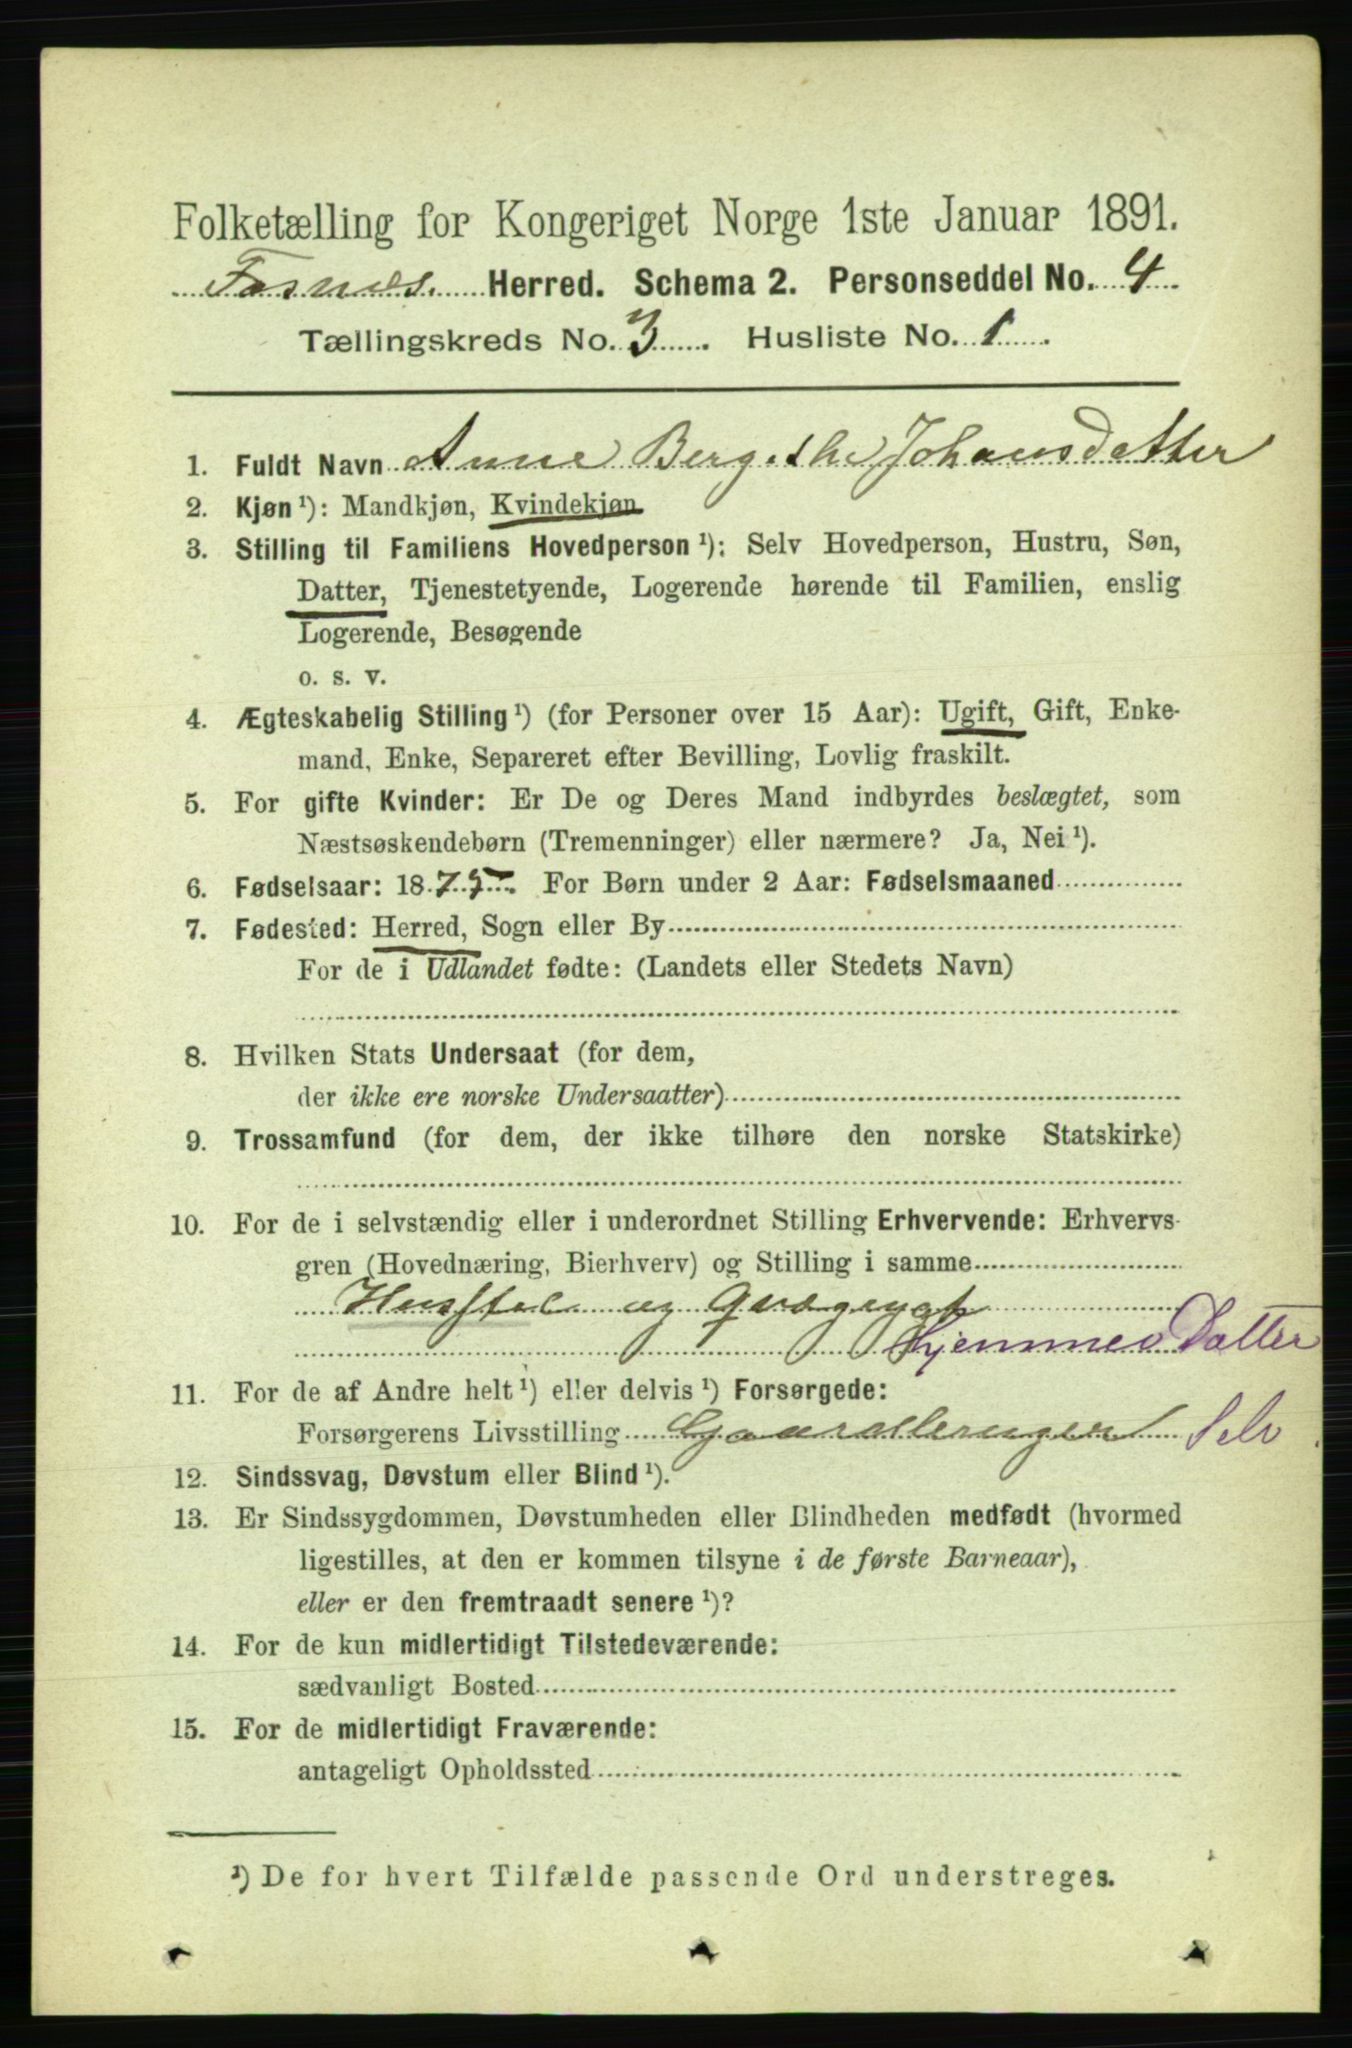 Folketælling for Kongeriget Norge 1ste Januar 1891.
Fosnes Herred. Schema 2. Personseddel No. 4
Tællingskreds No. 3 Husliste No. 1
1. Fuldt Navn Anne Bergithe Johansdatter
2. Kjøn ¹): Mandkjøn, Kvindekjøn
3. Stilling til Familiens Hovedperson ¹): Selv Hovedperson, Hustru, Søn,
Datter, Tjenestetyende, Logerende hørende til Familien, enslig
Logerende, Besøgende
o. s. v.
4. Ægteskabelig Stilling ¹) (for Personer over 15 Aar): Ugift, Gift, Enke-
mand, Enke, Separeret efter Bevilling, Lovlig fraskilt.
5. For gifte Kvinder: Er De og Deres Mand indbyrdes beslægtet, som
Næstsøskendebørn (Tremenninger) eller nærmere? Ja, Nei ¹).
6. Fødselsaar: 1875 For Børn under 2 Aar: Fødselsmaaned
7. Fødested: Herred, Sogn eller By
For de i Udlandet fødte: (Landets eller Stedets Navn)
8. Hvilken Stats Undersaat (for dem,
der ikke ere norske Undersaatter)
9. Trossamfund (for dem, der ikke tilhøre den norske Statskirke)
10. For de i selvstændig eller i underordnet Stilling Erhvervende: Erhvervs-
gren (Hovednæring, Bierhverv) og Stilling i samme
Husstel og Qvægrygt
Hjemmev Datter
11. For de af Andre helt ¹) eller delvis ¹) Forsørgede:
Forsørgerens Livsstilling Gaardbruger Selv
12. Sindssvag, Døvstum eller Blind ¹).
13. Er Sindssygdommen, Døvstumheden eller Blindheden medfødt (hvormed
ligestilles, at den er kommen tilsyne i de første Barneaar),
eller er den fremtraadt senere ¹)?
14. For de kun midlertidigt Tilstedeværende:
sædvanligt Bosted
15. For de midlertidigt Fraværende:
antageligt Opholdssted
¹) De for hvert Tilfælde passende Ord understreges.